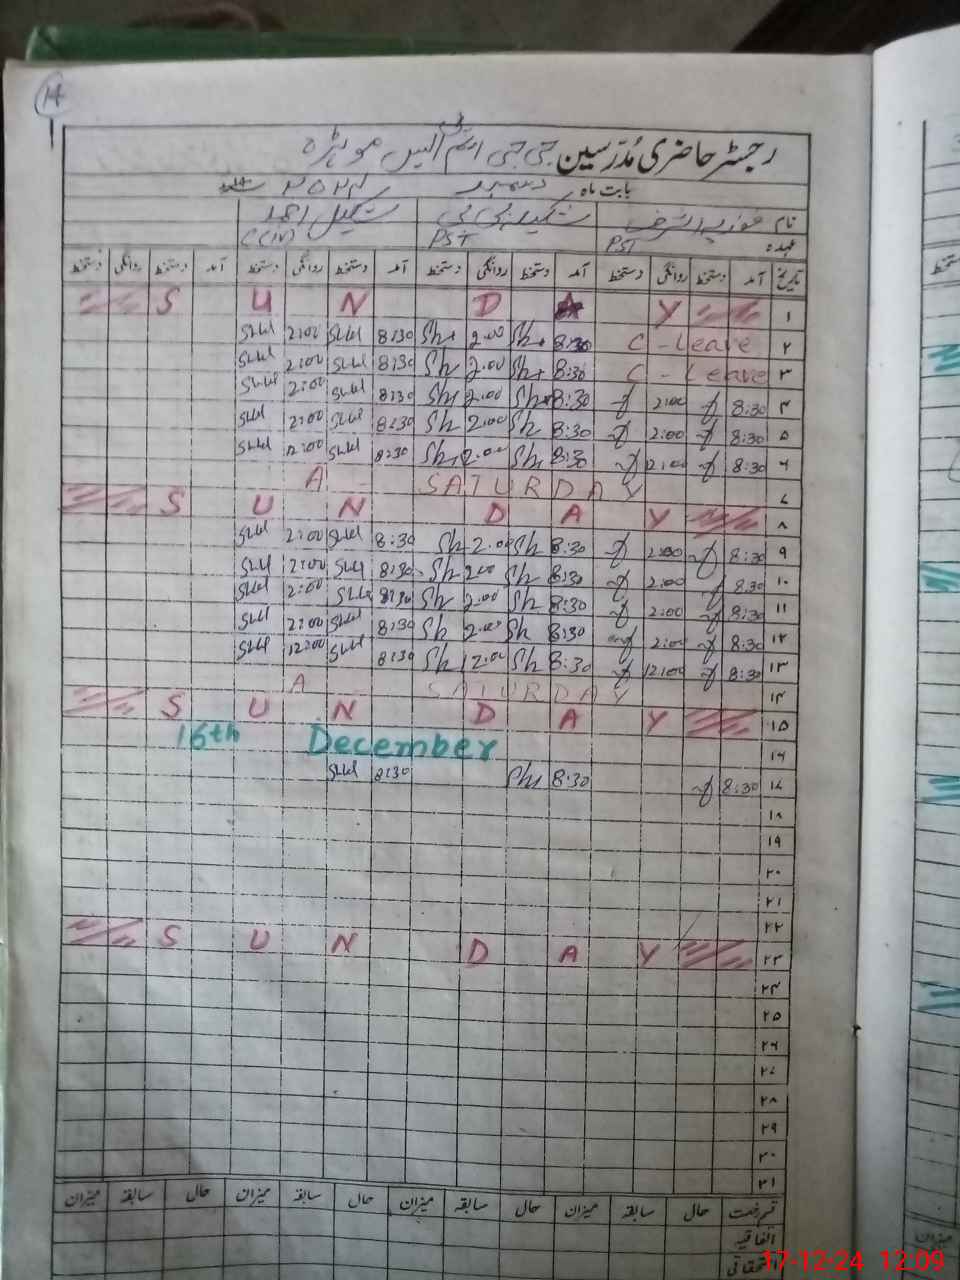 14
رجسٹر حاضری مُدرسین جی جی ایم ایس موہڑہ
بابت ماہ دسمبر ۲۰۲۴
نام شکیل احمد
عہدہ PST PST
تاریخ آمد دستخط روانگی دستخط آمد دستخط روانگی دستخط آمد دستخط روانگی دستخط آمد دستخط روانگی دستخط
۱ S U N D A Y
۲ C - Leave 8:30 Sh 2:00 Sh 8:30 2:00
۳ C - Leave 8:30 Sh 2:00 Sh 8:30 2:00
۴ 8:30 2:00 8:30 Sh 2:00 Sh 8:30 2:00
۵ 8:30 2:00 8:30 Sh 2:00 Sh 8:30 2:00
۶ 8:30 12:00 8:30 Sh 12:00 Sh 8:30 12:00
۷ A SATURDAY
۸ S U N D A Y
۹ 8:30 2:00 8:30 Sh 2:00 Sh 8:30 2:00
۱۰ 8:30 2:00 8:30 Sh 2:00 Sh 8:30 2:00
۱۱ 8:30 2:00 8:30 Sh 2:00 Sh 8:30 2:00
۱۲ 8:30 2:00 8:30 Sh 2:00 Sh 8:30 2:00
۱۳ 8:30 12:00 8:30 Sh 12:00 Sh 8:30 12:00
۱۴ A SATURDAY
۱۵ S U N D A Y
۱۶ 16th December
۱۷ 8:30 8:30 Sh 8:30
۱۸
۱۹
۲۰
۲۱
۲۲
۲۳ S U N D A Y
۲۴
۲۵
۲۶
۲۷
۲۸
۲۹
۳۰
۳۱
قسم رخصت حال سابقہ میزان حال سابقہ میزان حال سابقہ میزان حال سابقہ میزان
اتفاقیہ
میزان
17-12-24 12:09